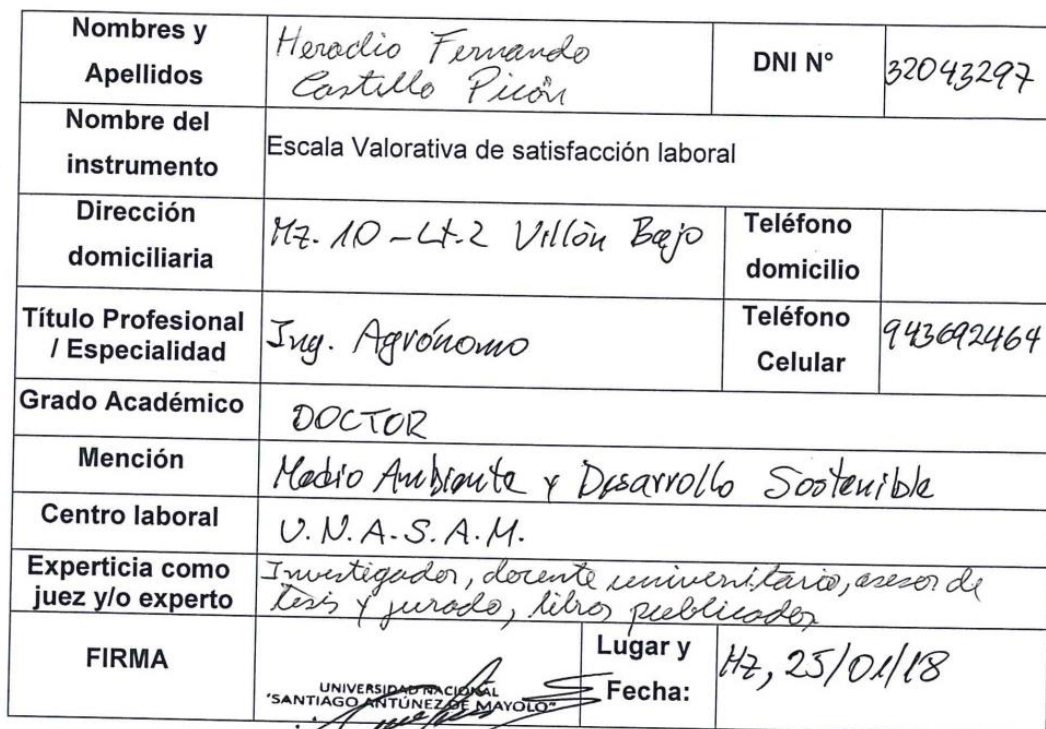 Nombres y Apellidos
Heraclio Fernando
Castillo Picón
DNI N°
32043297
Nombre del instrumento
Escala Valorativa de satisfacción laboral
Dirección domiciliaria
Mz. 10 - Lt. 2 Villón Bajo
Teléfono domicilio
Título Profesional / Especialidad
Ing. Agrónomo
Teléfono Celular
943692464
Grado Académico
DOCTOR
Mención
Medio Ambiente y Desarrollo Sostenible
Centro laboral
U.N.A.S.A.M.
Experticia como juez y/o experto
Investigador, docente universitario, asesor de
tesis y jurado, libros publicados
FIRMA
UNIVERSIDAD NACIONAL
"SANTIAGO ANTÚNEZ DE MAYOLO"
Lugar y Fecha:
Hz, 25/01/18